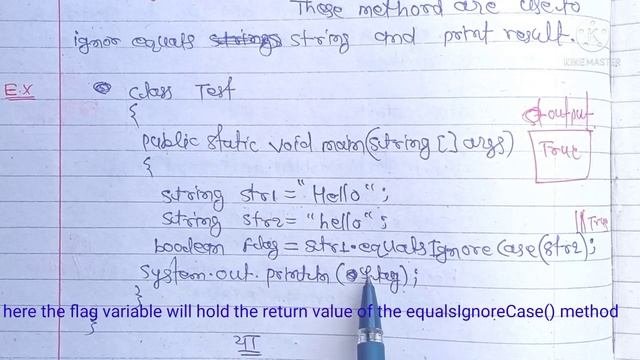 These method are use to
ignor equals string and print result.
KINEMASTER
EX class Test
{
output
public static void main(string [] args)
True
{
string str1 = "Hello";
string str2 = "hello";
|| True
boolean flag = str1.equalsIgnoreCase(str2);
System.out.println(flag);
}
here the flag variable will hold the return value of the equalsIgnoreCase() method
}
या